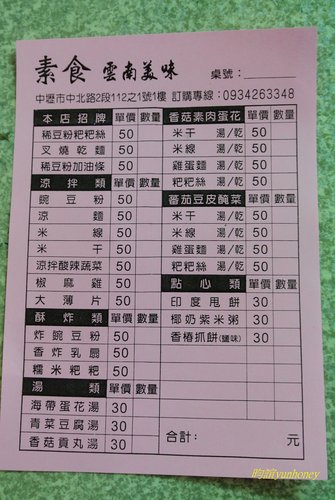 素食 雲南美味
桌號：
中壢市中北路2段112之1號1樓 訂購專線：0934263348
本店招牌 單價 數量
稀豆粉粑粑絲 50
叉燒乾麵 50
稀豆粉加油條 50
涼拌類 單價 數量
豌豆粉 50
涼麵 50
米線 50
米干 50
涼拌酸辣蔬菜 50
椒麻雞 50
大薄片 50
酥炸類 單價 數量
炸豌豆粉 50
香炸乳扇 50
糯米粑粑 50
湯類 單價 數量
海帶蛋花湯 30
青菜豆腐湯 30
香菇貢丸湯 30
香菇素肉蛋花 單價 數量
米干 湯/乾 50
米線 湯/乾 50
雞蛋麵 湯/乾 50
粑粑絲 湯/乾 50
蕃茄豆皮醃菜 單價 數量
米干 湯/乾 50
米線 湯/乾 50
雞蛋麵 湯/乾 50
粑粑絲 湯/乾 50
點心類 單價 數量
印度甩餅 30
椰奶紫米粥 30
香椿抓餅(鹹味) 30
合計： 元
昀誼yunhoney